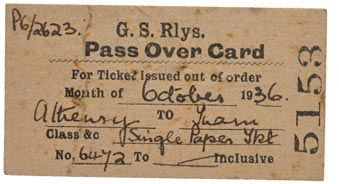 P6/2623.
G. S. Rlys.
Pass Over Card
For Ticket issued out of order
Month of October 1936.
Athenry TO Tuam
Class &c Single Paper Tkt
No. 6472 To — Inclusive
5153